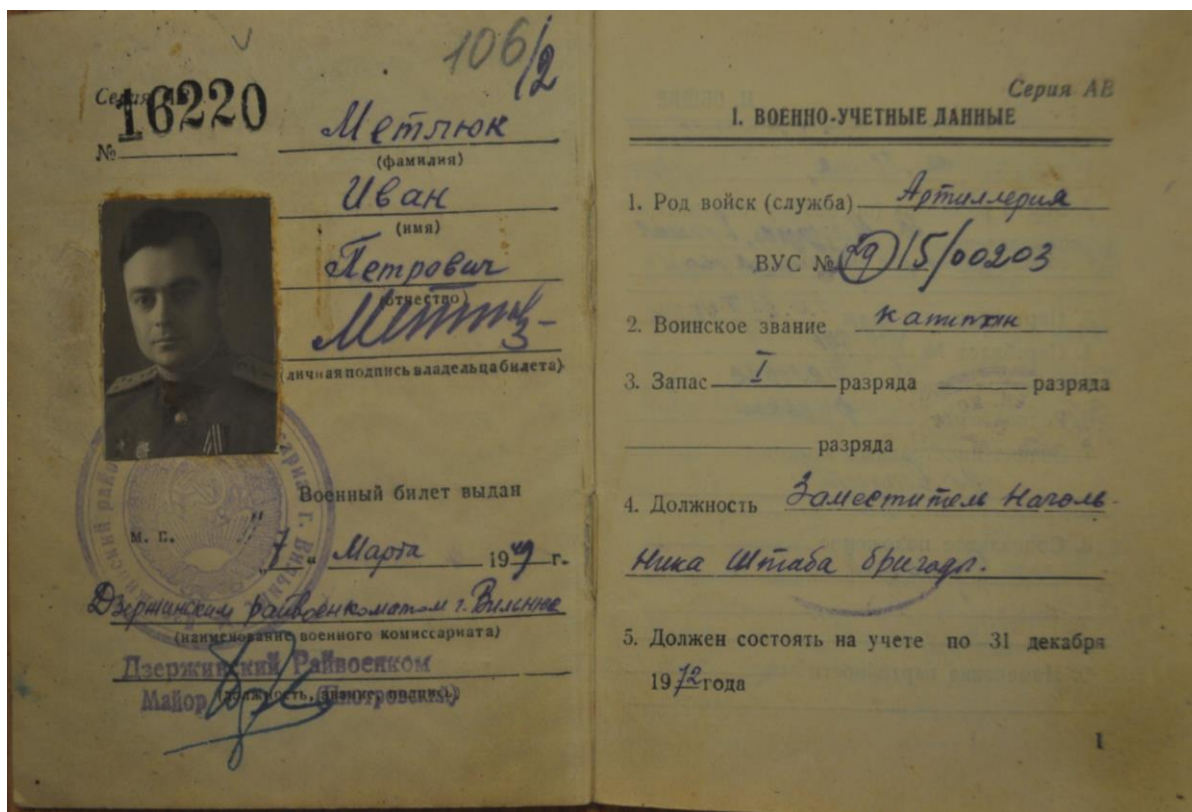 106/2
Серия АВ
16220
№
Метлюк
(фамилия)
Иван
(имя)
Петрович
(отчество)
(личная подпись владельца билета)
Военный билет выдан
М. П.
"7" Марта 1949 г.
Дзержинским райвоенкоматом г. Вильнюс
(наименование военного комиссариата)
Дзержинский Райвоенком
(должность, звание, подпись)
Майор (Пиотровский)
Серия АВ
I. ВОЕННО-УЧЕТНЫЕ ДАННЫЕ
1. Род войск (служба) Артиллерия
ВУС № 29/15/00203
2. Воинское звание капитан
3. Запас I разряда разряда
разряда
4. Должность Заместитель Началь-
ника Штаба бригады.
5. Должен состоять на учете по 31 декабря
1972 года
1